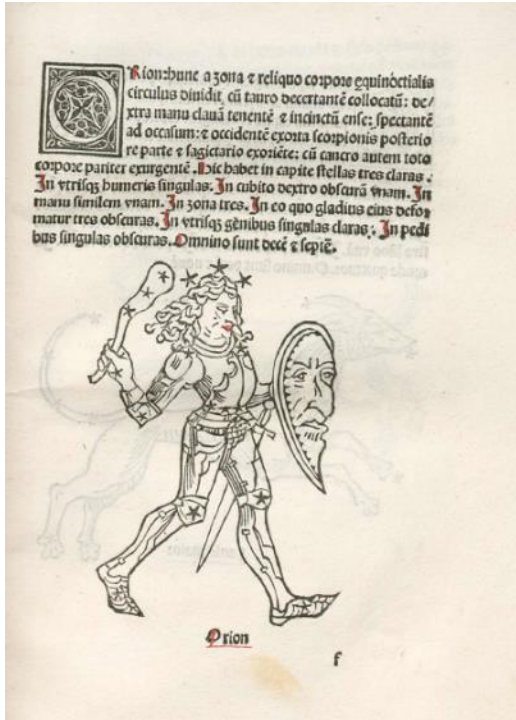 ORion: hunc a zona ⁊ reliquo corpore equinoctialis
circulus diuidit, cũ tauro decertantẽ collocatũ: de/
xtra manu clauã tenentẽ ⁊ incinctũ ense: spectantẽ
ad occasum: ⁊ occidentẽ exorta scorpionis posterio
re parte ⁊ sagictario exoriẽte: cũ cancro autem toto
corpore pariter exurgentẽ. Hic habet in capite stellas tres claras.
In vtrisqꝫ humeris singulas. In cubito dextro obscurã vnam. In
manu similem vnam. In zona tres. In eo quo gladius eius defor
matur tres obscuras. In vtrisqꝫ gẽnibus singulas claras. In pedi
bus singulas obscuras. Omnino sunt decẽ ⁊ septẽ.
Orion
f